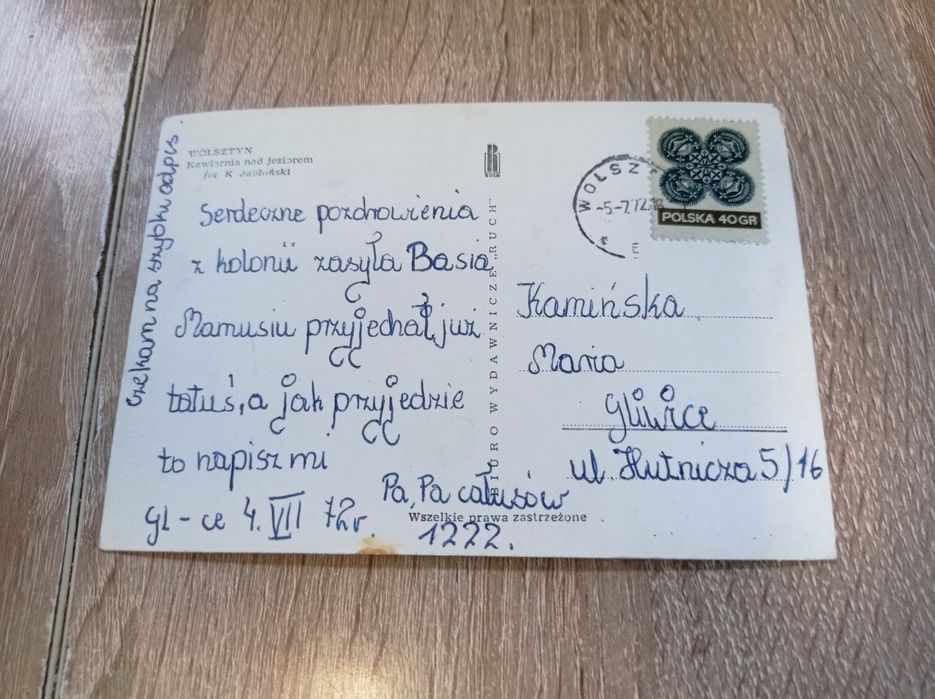 WOLSZTYN
Kawiarnia nad jeziorem
fot K Jabłoński
Serdeczne pozdrowienia
z kolonii zasyła Basia
Mamusiu przyjechał już
tatuś, a jak przyjedzie
to napisz mi
Pa, Pa całusów
1222.
gl-ce 4. VII 72r.
czekam na szybki odpis.
BIURO WYDAWNICZE „RUCH"
Wszelkie prawa zastrzeżone
WOLSZT
-5-7.72.18
E
POLSKA 40GR
Kamińska
Maria
Gliwice
ul. Hutnicza 5/16